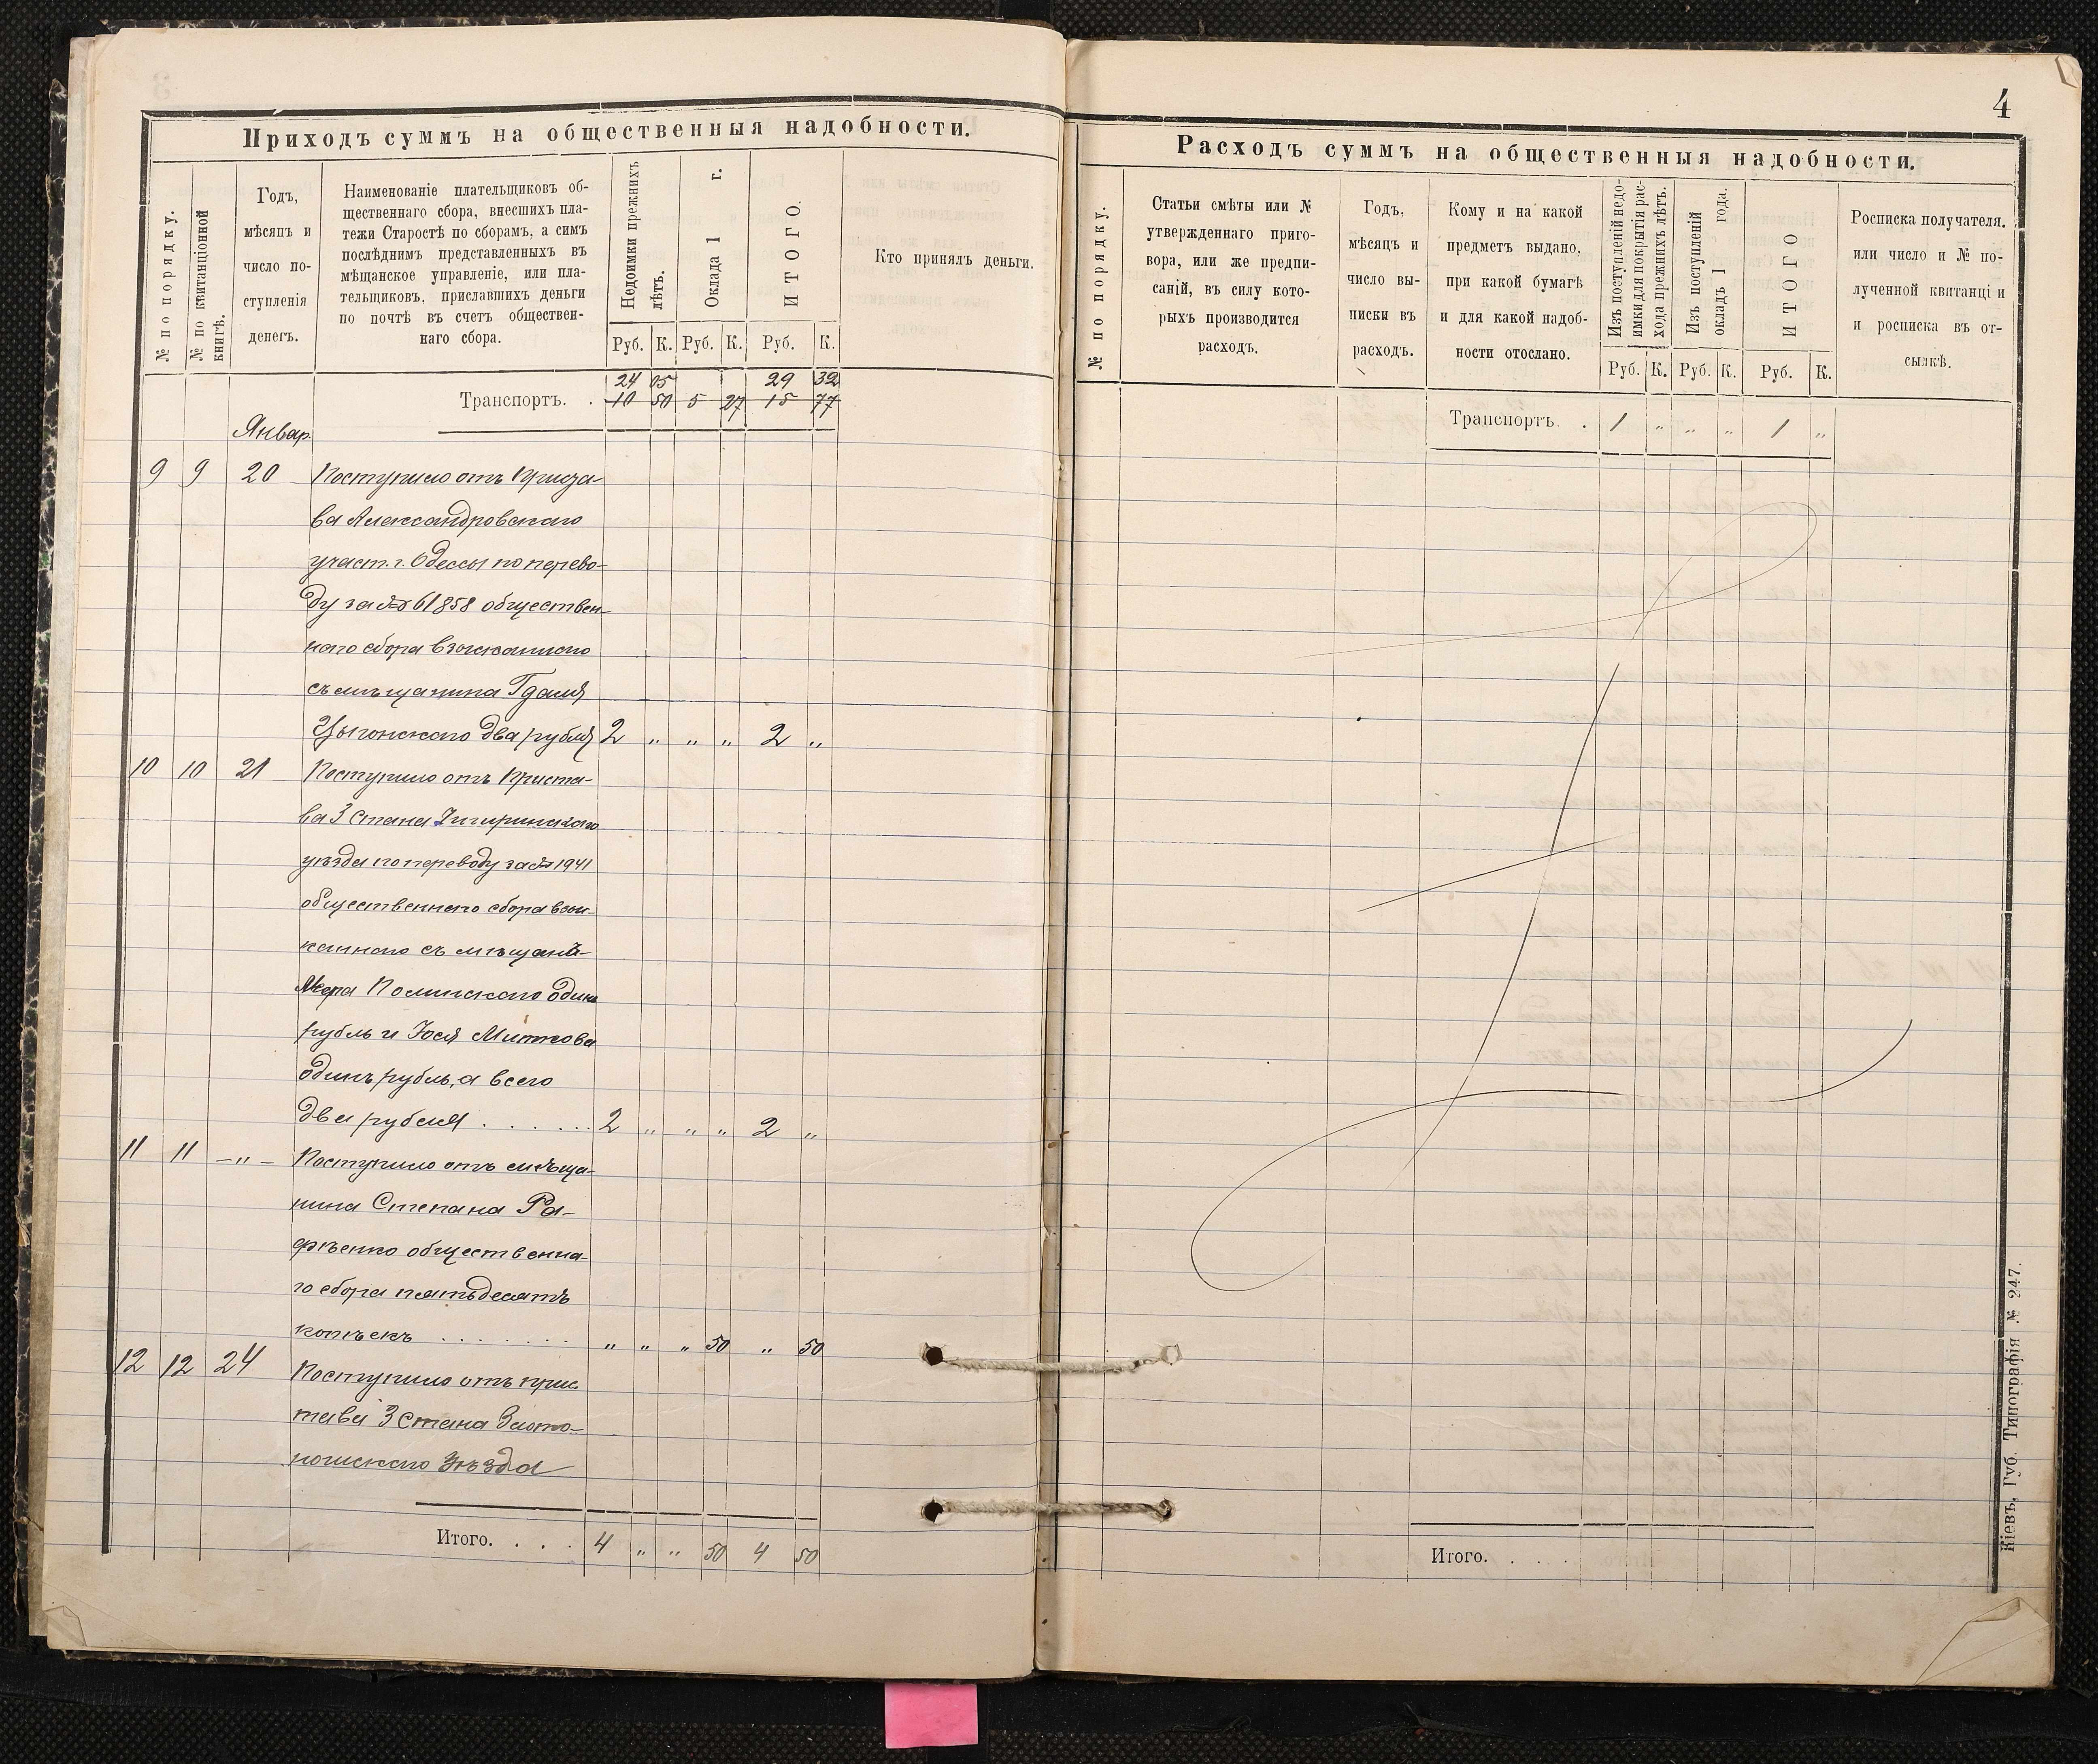 4
Приходъ суммъ на общественныя надобности.
№ по порядку.
№ по квитанціонной
книгѣ.
Годъ,
мѣсяцъ и
число по-
ступленія
денегъ.
Наименованіе плательщиковъ об-
щественнаго сбора, внесшихъ пла-
тежи Старостѣ по сборамъ, а симъ
послѣднимъ представленныхъ въ
мѣщанское управленіе, или пла-
тельщиковъ, приславшихъ деньги
по почтѣ въ счетъ обществен-
наго сбора.
Недоимки прежнихъ
лѣтъ.
Оклада 1 г.
ИТОГО.
Руб. К. Руб. К. Руб. К.
Кто принялъ деньги.
24 05 29 32
Транспортъ. . 10 50 5 27 15 77
Январ.
9 9 20 Поступило отъ Приста-
ва Александровскаго
участ. г. Одессы по перево-
ду за № 61858 обществен-
наго сбора взысканнаго
съ мѣщанина Гдаля
Цыгонскаго два рубля 2 " " " 2 "
10 10 21 Поступило отъ Приста-
ва 3 стана Чигиринскаго
уѣзда по переводу за № 1941
общественнаго сбора взы-
каннаго съ мѣщанъ-
Мера Полинскаго одинъ
рубль и Іося
одинъ рубль, а всего
два рубля . . . . . . 2 " " " 2 "
11 11 — " — Поступило отъ мѣща-
нина Степана Ра-
фѣенко общественна-
го сбора пятьдесятъ
копѣекъ . . . . . . . " " " 50 " 50
12 12 24 Поступило отъ прис
тава 3 стана Золото-
ношскаго уѣзда
Итого. . . . 4 " " 50 4 50
Расходъ суммъ на общественныя надобности.
№ по порядку.
Статьи смѣты или №
утвержденнаго приго-
вора, или же предпи-
саній, въ силу кото-
рыхъ производится
расходъ.
Годъ,
мѣсяцъ и
число вы-
писки въ
расходъ.
Кому и на какой
предметъ выдано,
при какой бумагѣ
и для какой надоб-
ности отослано.
Изъ поступленій недо-
имки для покрытія рас-
хода прежнихъ лѣтъ.
Изъ поступленій
окладъ 1 года.
ИТОГО
Руб. К. Руб. К. Руб. К.
Росписка получателя.
или число и № по-
лученной квитанці и
и росписка въ от-
сылкѣ.
Транспортъ. . 1 " " " 1 "
Итого. . . .
Кіевъ, Губ. Типографія № 247.